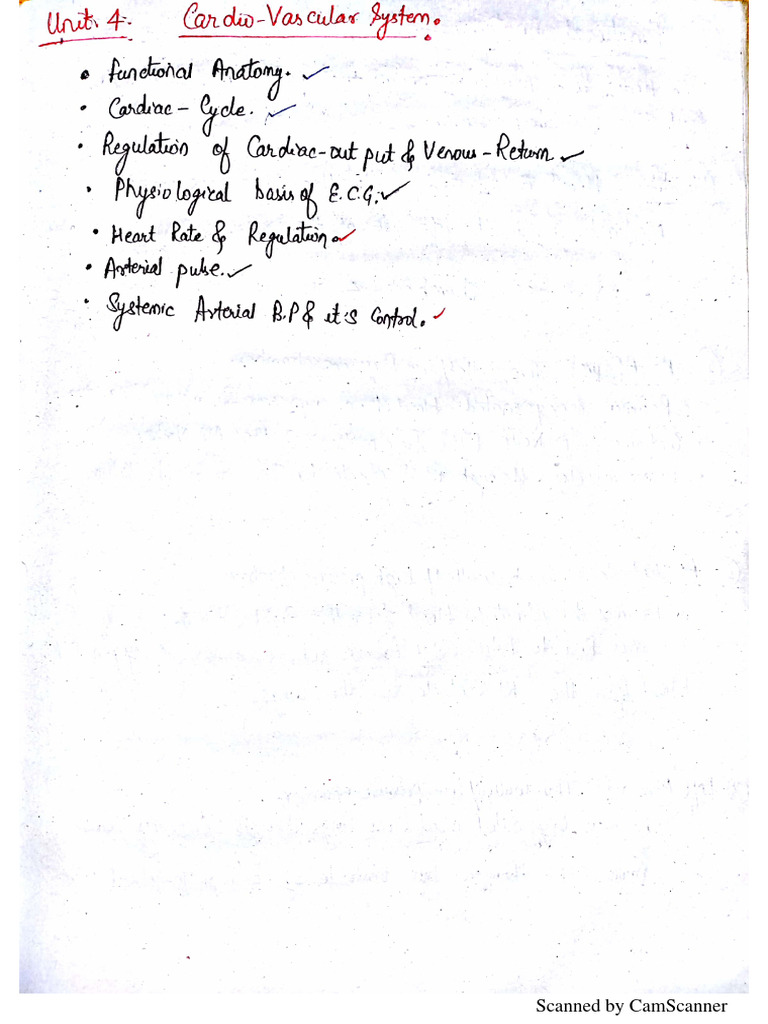 Unit. 4. Cardio-Vascular System.
• Functional Anatomy. ✓
• Cardiac - Cycle. ✓
• Regulation of Cardiac-out put & Venous-Return ✓
• Physiological basis of E.C.G. ✓
• Heart Rate & Regulation. ✓
• Arterial pulse. ✓
• Systemic Arterial B.P & it's Control. ✓
Scanned by CamScanner